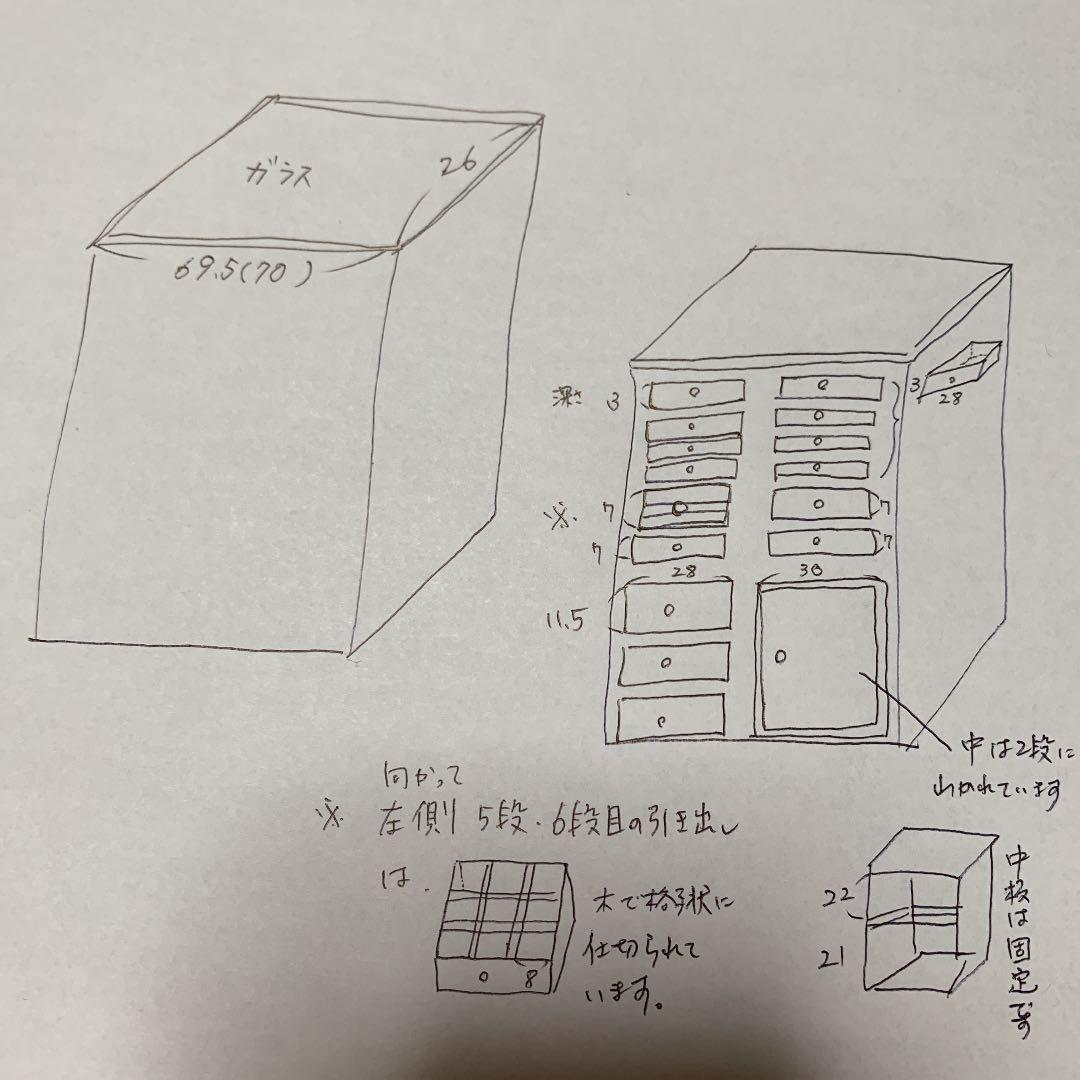 ガラス
26
69.5(70)
深さ 3
3
28
※ 7
7
7
7
28
30
11.5
中は2段に
わかれています
向かって
※ 左側 5段・6段目の引き出し
は、
木で格子状に
仕切られて
います。
8
22
21
中板は固定です